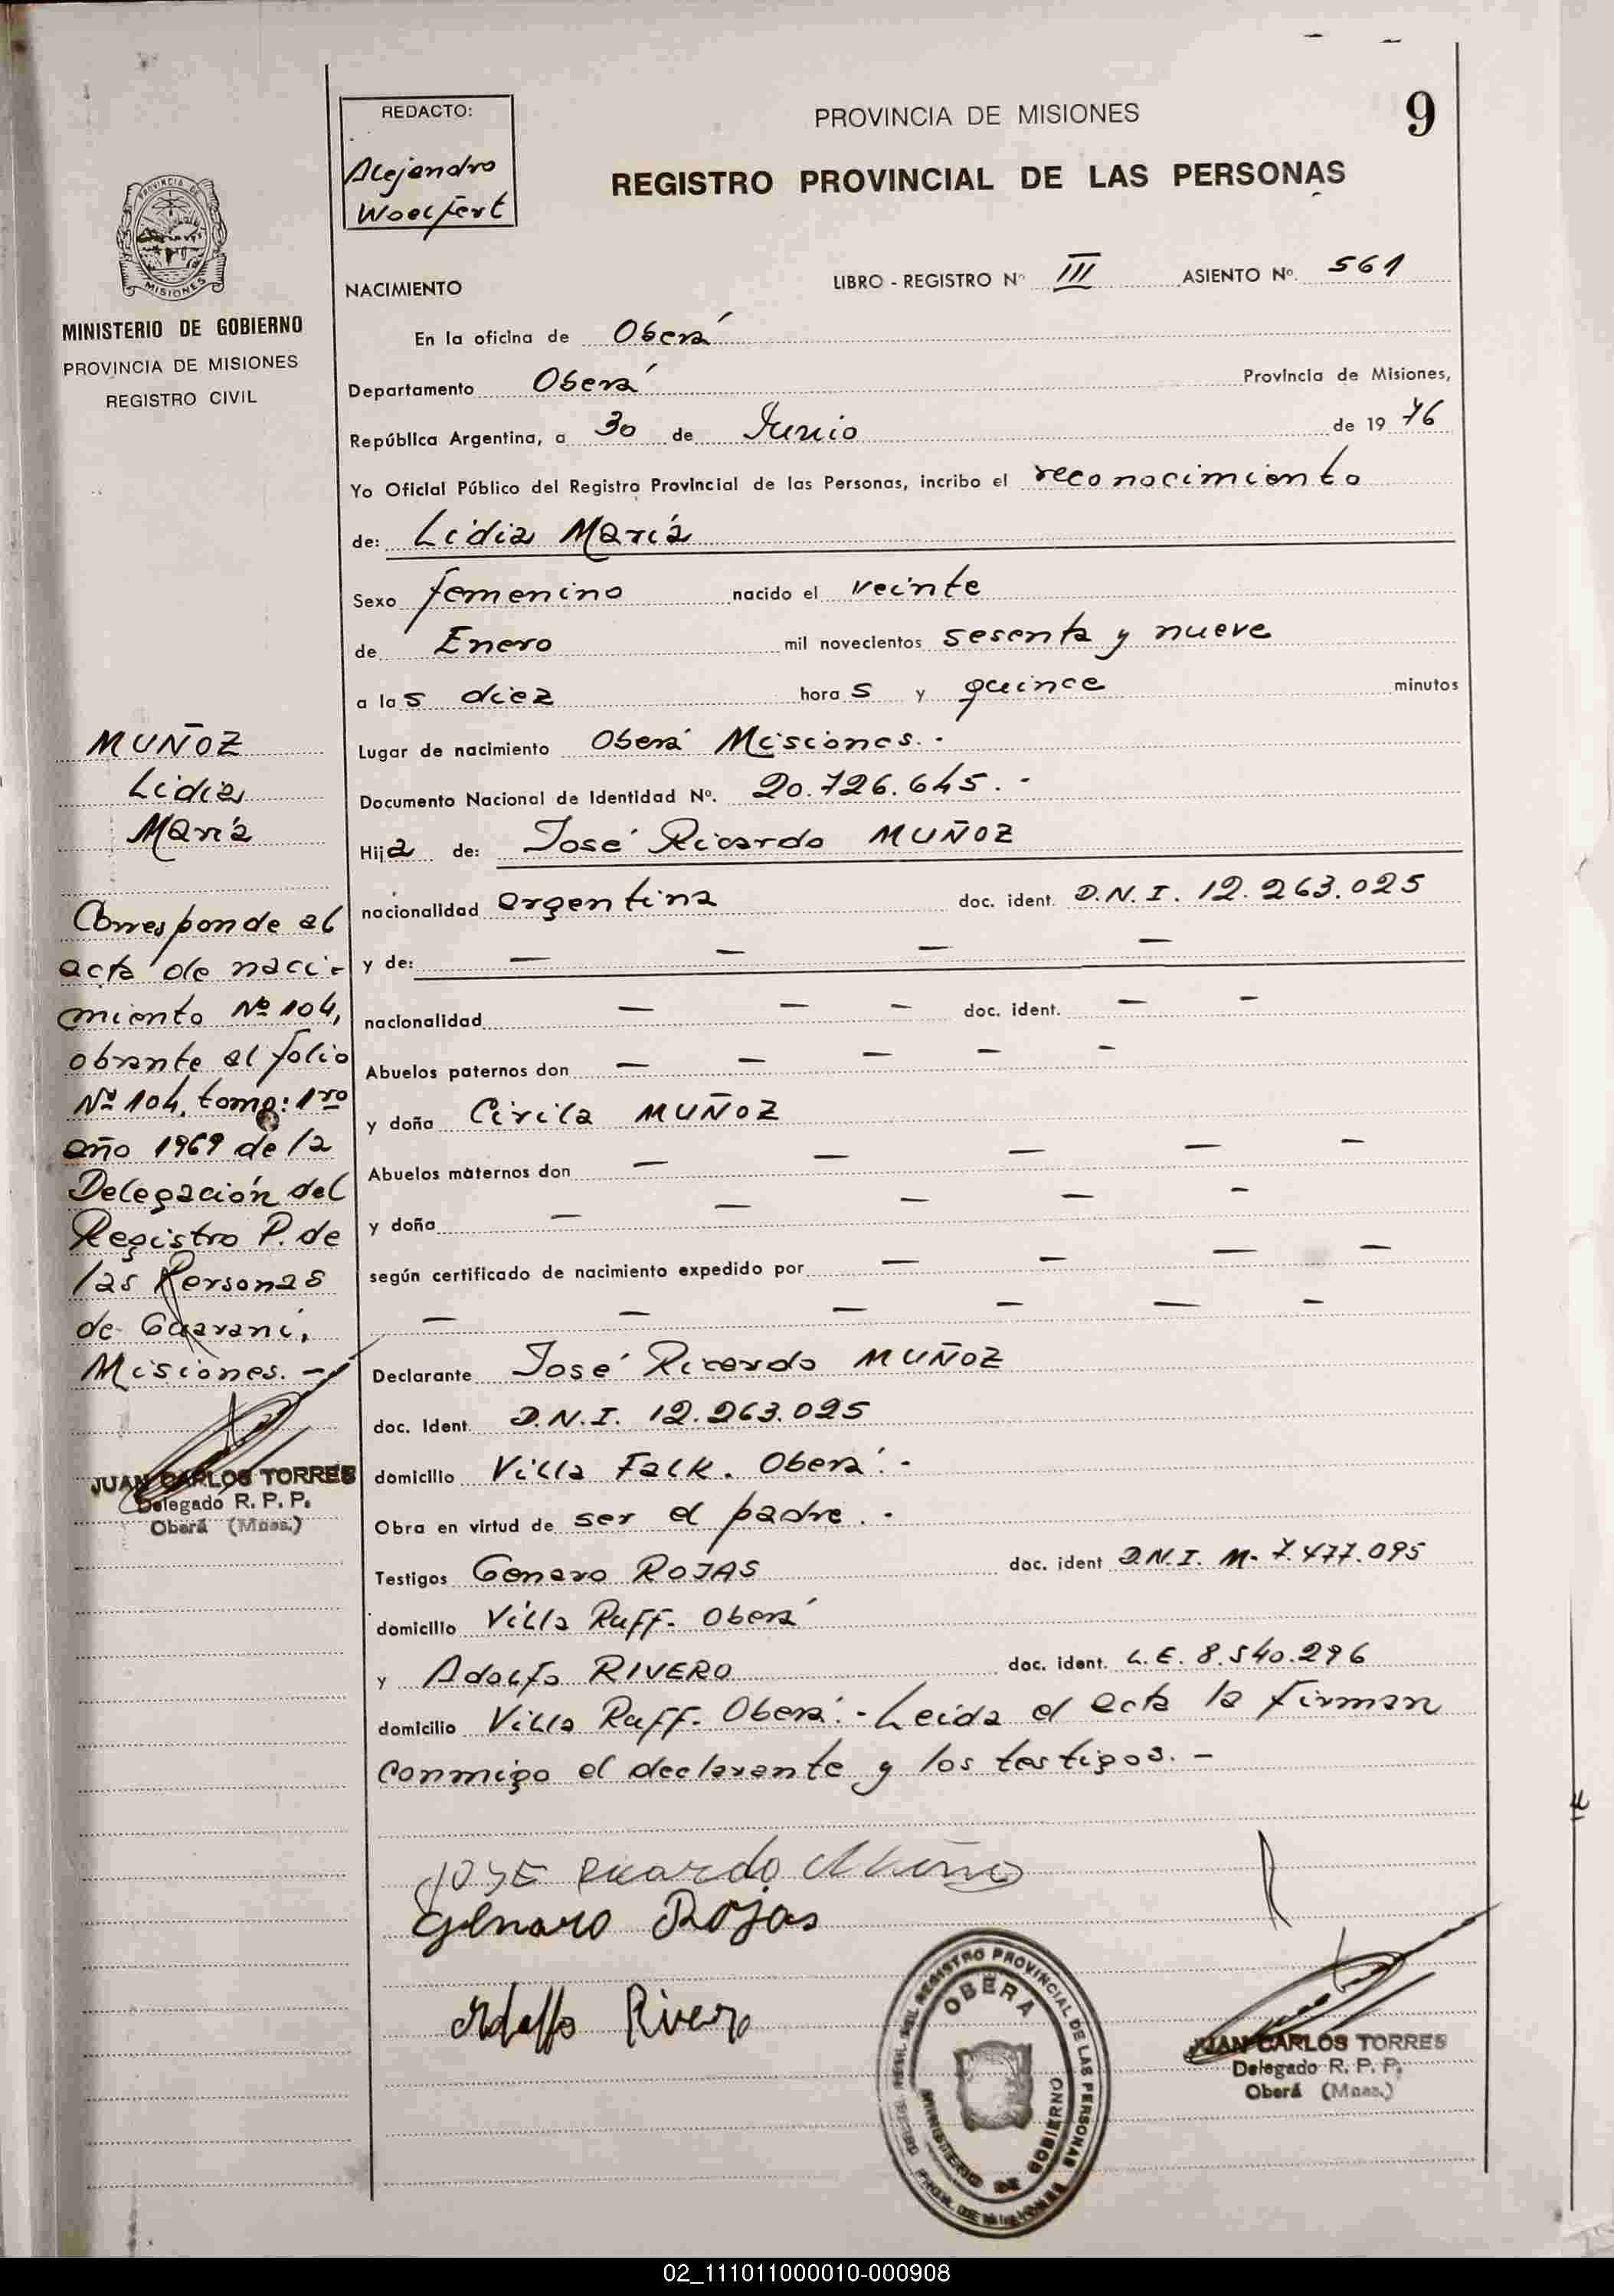 9
REDACTO:
Alejandro
Woelfert
PROVINCIA DE MISIONES
REGISTRO PROVINCIAL DE LAS PERSONAS
PROVINCIA DE
MISIONES
MINISTERIO DE GOBIERNO
PROVINCIA DE MISIONES
REGISTRO CIVIL
NACIMIENTO LIBRO - REGISTRO Nº III ASIENTO Nº. 561
En la oficina de Oberá
Departamento Oberá Provincia de Misiones,
República Argentina, a 30 de Junio de 19 76
Yo Oficial Público del Registro Provincial de las Personas, incribo el reconocimiento
de: Lidia María
Sexo femenino nacido el veinte
de Enero mil novecientos sesenta y nueve
a las diez horas y quince minutos
Lugar de nacimiento Oberá Misiones.-
Documento Nacional de Identidad Nº. 20.726.645.-
Hija de: José Ricardo MUÑOZ
nacionalidad argentina doc. ident. D.N.I. 12.263.025
y de: — — — —
nacionalidad — — — doc. ident. — —
Abuelos paternos don — — — — —
y doña Cirila MUÑOZ
Abuelos maternos don — — — — —
y doña — — — — —
según certificado de nacimiento expedido por — — — —
— — — — — —
Declarante José Ricardo MUÑOZ
doc. Ident. D.N.I. 12.263.025
domicilio Villa Falk. Oberá.-
Obra en virtud de ser el padre.-
Testigos Genaro ROJAS doc. ident D.N.I. M- 7.477.095
domicilio Villa Ruff- Oberá
y Adolfo RIVERO doc. ident. L.E. 8.540.296
domicilio Villa Ruff- Oberá.- Leida el acta la firman
conmigo el declarante y los testigos.-
MUÑOZ
Lidia
María
Corresponde al
acta de naci-
miento Nº 104,
obrante al folio
Nº 104, tomo: 1ro
año 1969 de la
Delegación del
Registro P. de
las Personas
de Guaraní,
Misiones.-
JUAN CARLOS TORRES
Delegado R. P. P.
Oberá (Mnes.)
JOSE Ricardo
Genaro Rojas
Adolfo Rivero
REGISTRO PROVINCIAL DE LAS PERSONAS
OBERA
MINISTERIO DE GOBIERNO
JUAN CARLOS TORRES
Delegado R. P. P.
Oberá (Mnes.)
02_111011000010-000908